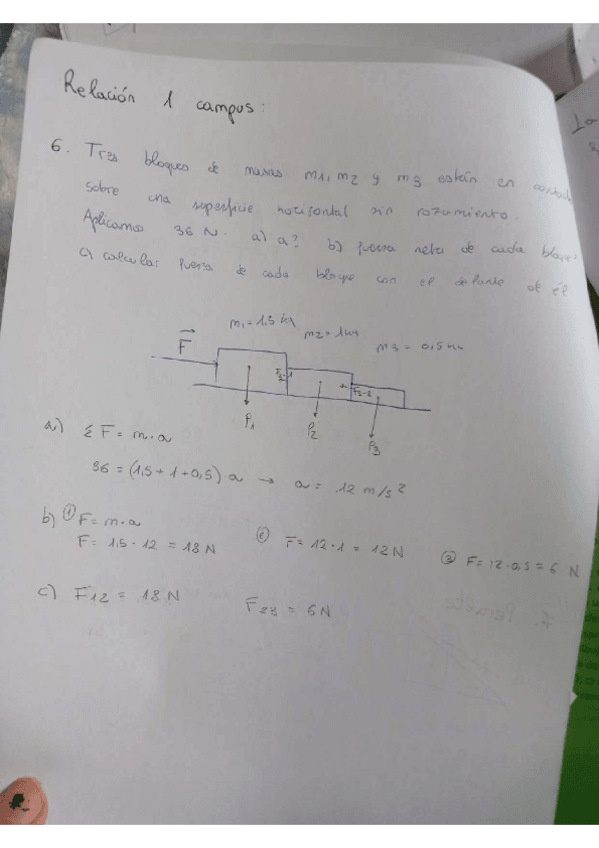 Relación 1 campus:
6. Tres bloques de masas m1, m2 y m3 están en contacto
sobre una superficie horizontal sin rozamiento.
Aplicamos 36 N. a) a? b) fuerza neta de cada bloque?
c) calcular fuerza de cada bloque con el delante de él
m1 = 1,5 kg
m2 = 1 kg
m3 = 0,5 kg
F
F2-1
F3-2
P1
P2
P3
a) Σ F = m·a
36 = (1,5 + 1 + 0,5) a → a = 12 m/s²
b) ① F = m·a
F = 1,5 · 12 = 18 N
② F = 12 · 1 = 12 N
③ F = 12 · 0,5 = 6 N
c) F12 = 18 N
F23 = 6 N